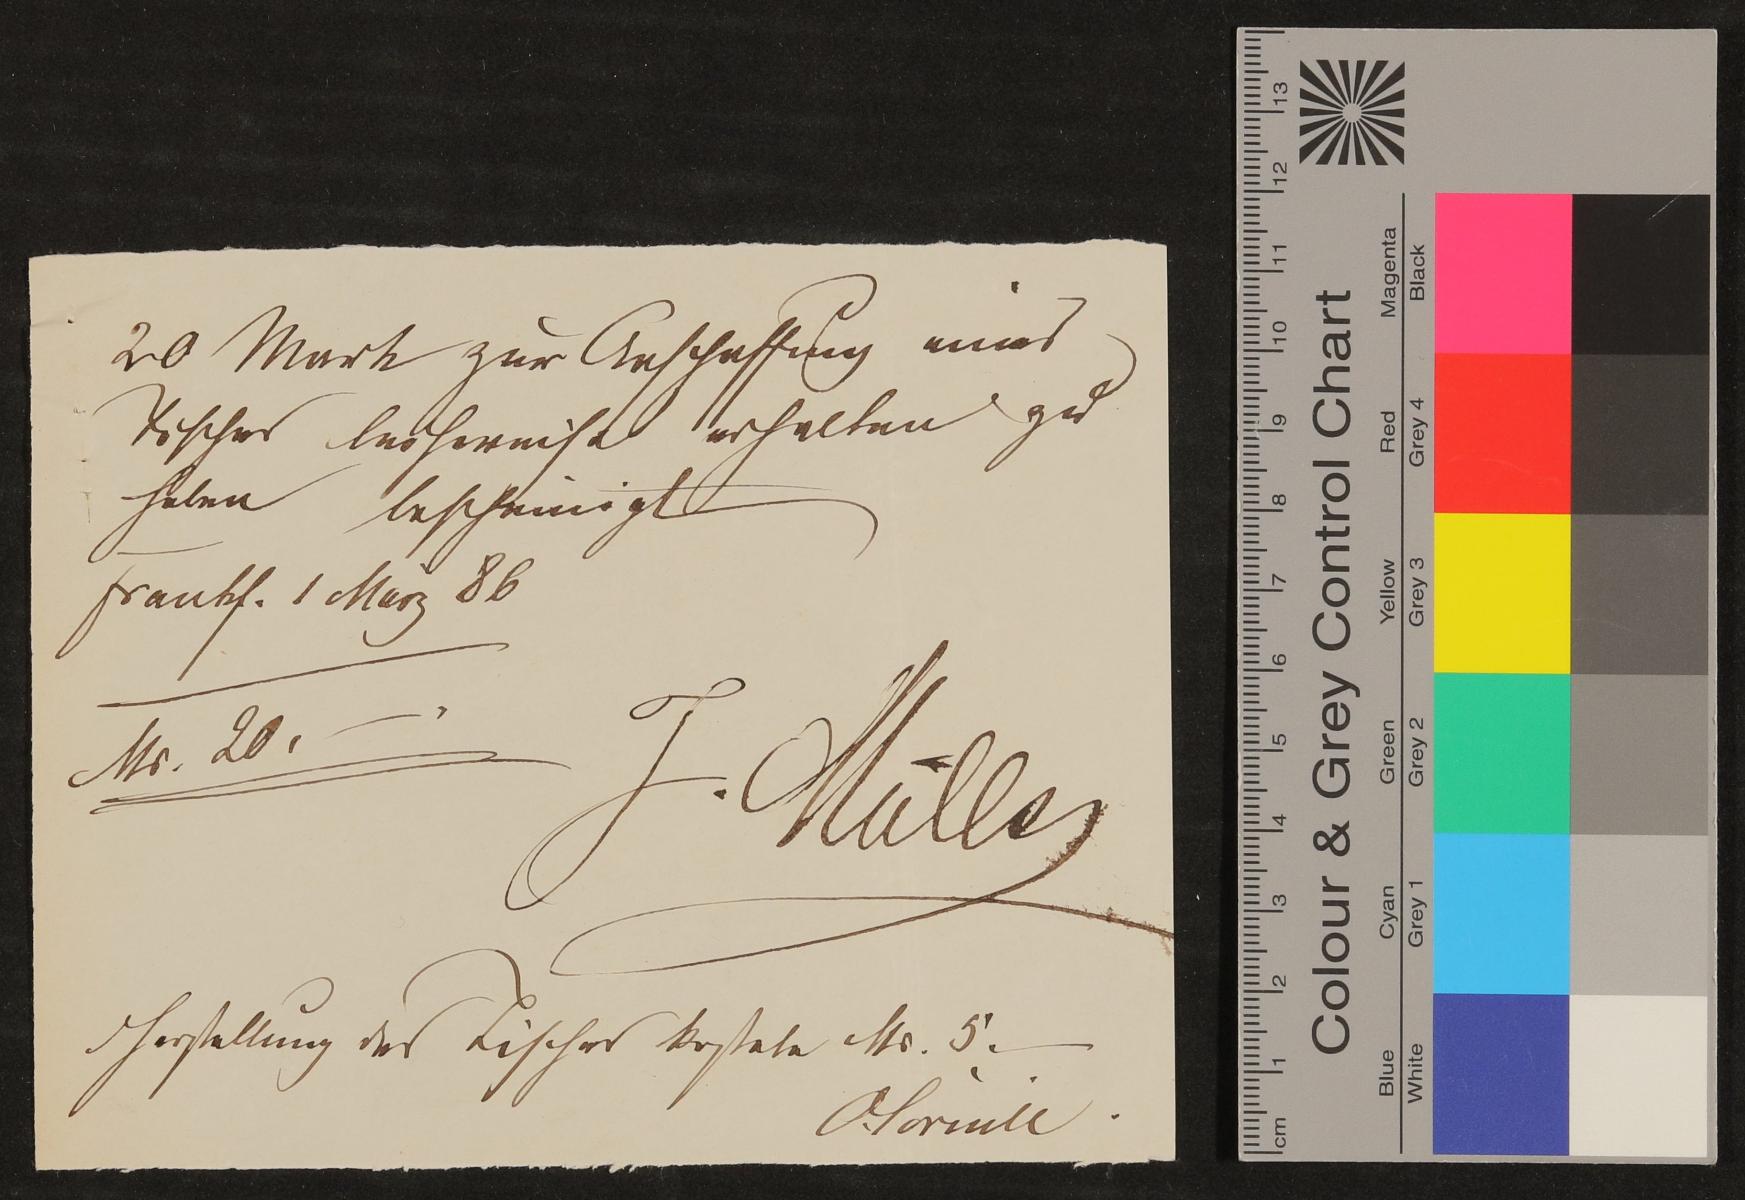 20 Mark zur Anschaffung eines
Tisches leihweise erhalten zu
haben bescheinigt
Frankf. 1 März 86
Mk. 20.
J. Müller
Herstellung des Tisches kostete Mk. 5.
O. Cornill
13
12
11
10
9
8
7
6
5
4
3
2
1
cm
Colour & Grey Control Chart
Magenta
Black
Red
Grey 4
Yellow
Grey 3
Green
Grey 2
Cyan
Grey 1
Blue
White